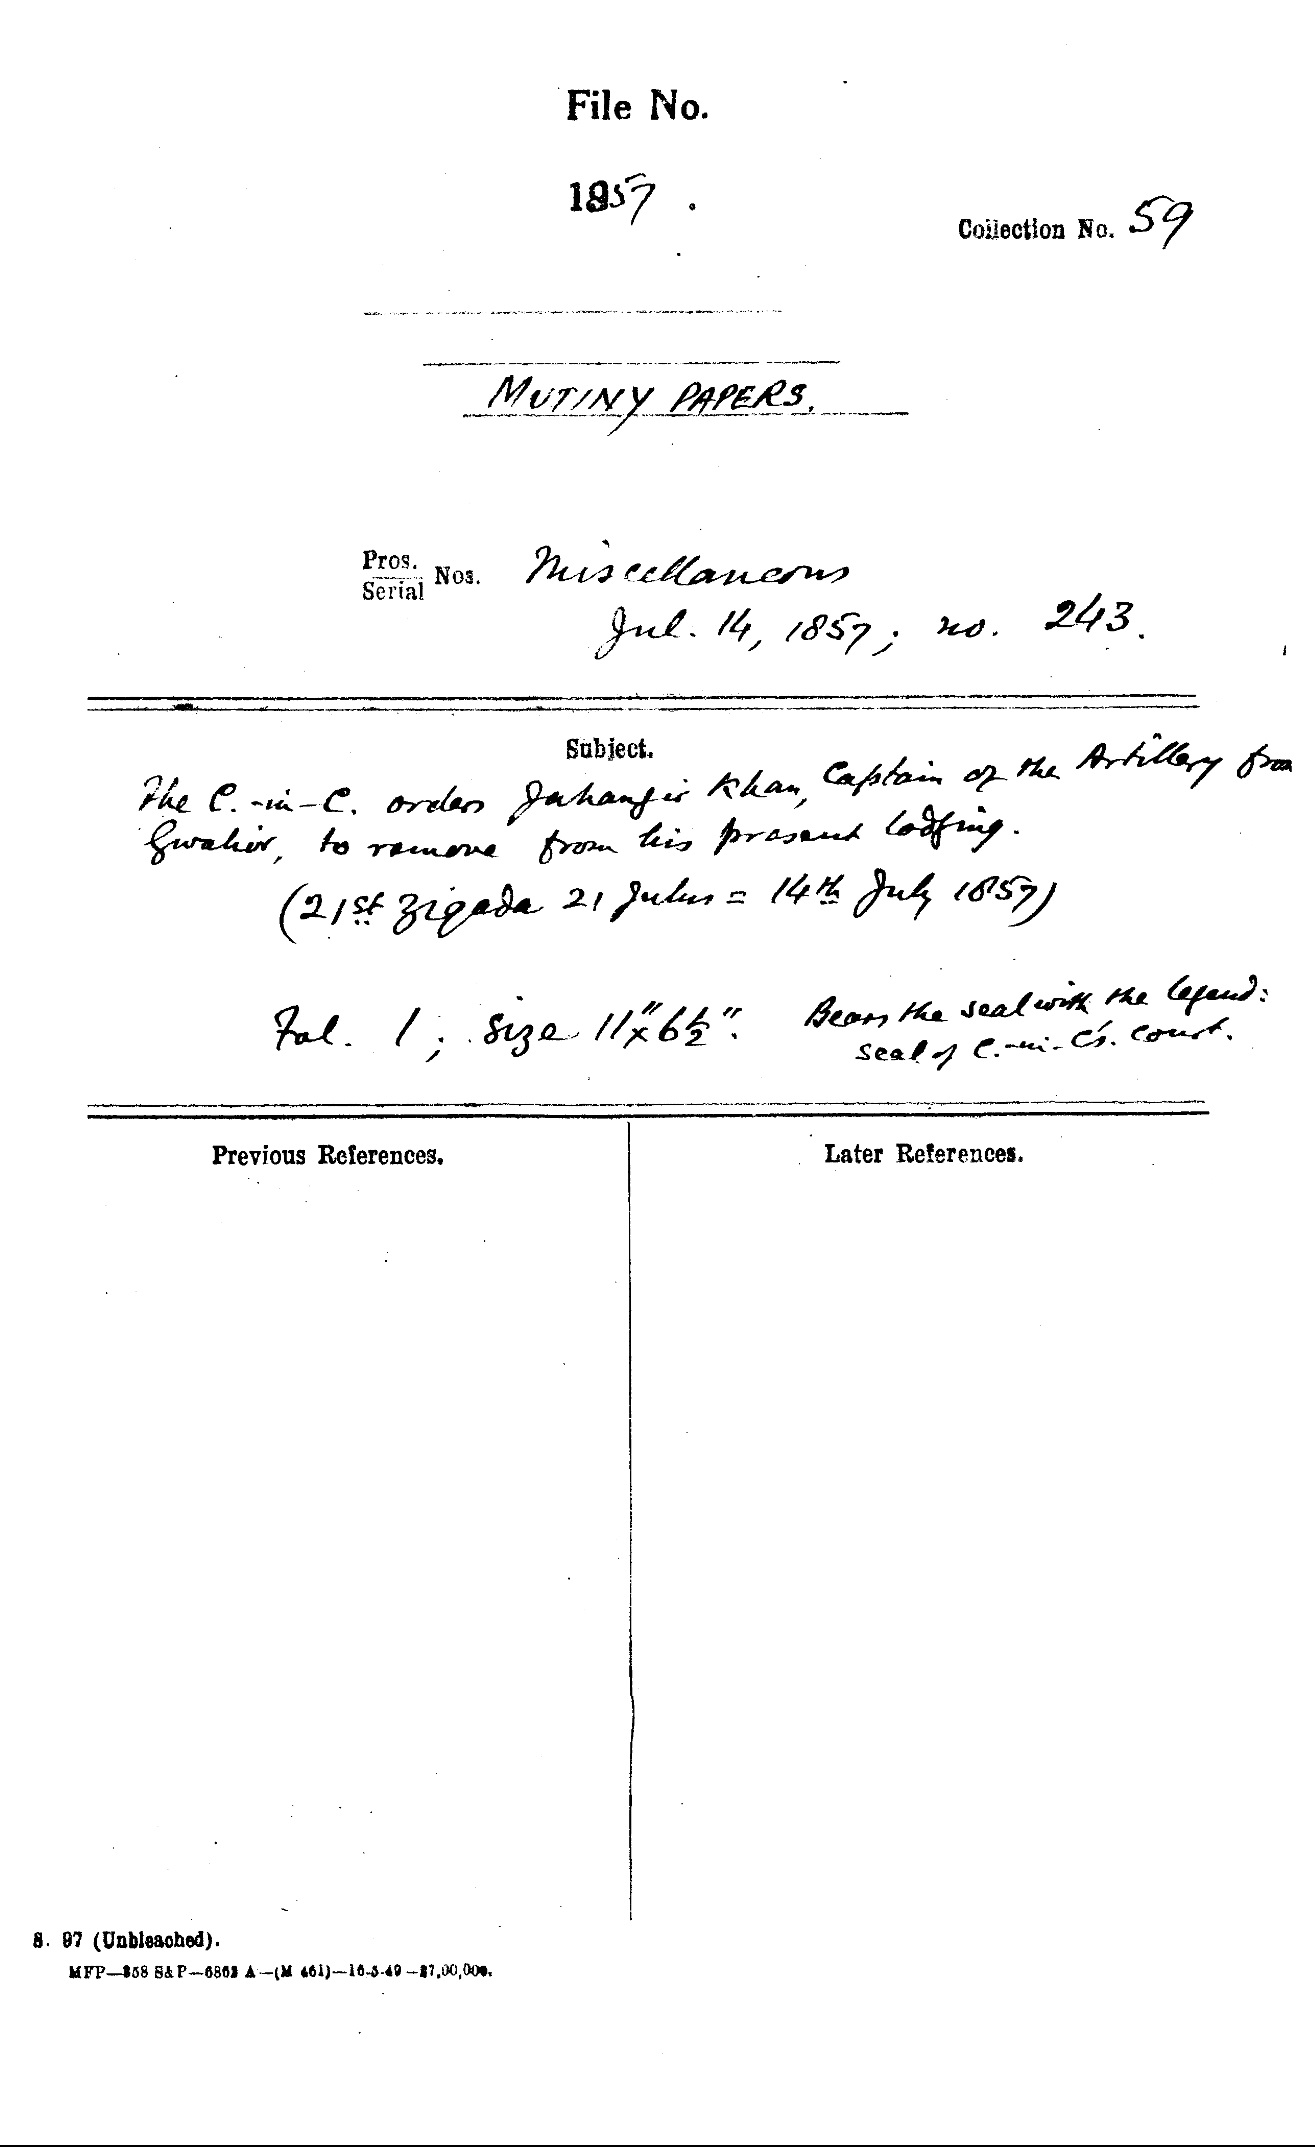 File No.
1857.
Collection No. 59
MUTINY PAPERS.
Pros.
Serial Nos. Miscellaneous
Jul. 14, 1857; no. 243.
Subject.
The C.-in-C. orders Jahangir Khan, Captain of the Artillery from
Gwalior, to remove from his present lodging.
(21st Ziqada 21 Julus = 14th July 1857)
Fol. 1; size 11"x6½". Bears the seal with the legend:
seal of C.-in-C's. Court.
Previous References.
Later References.
S. 97 (Unbleached).
MFP—